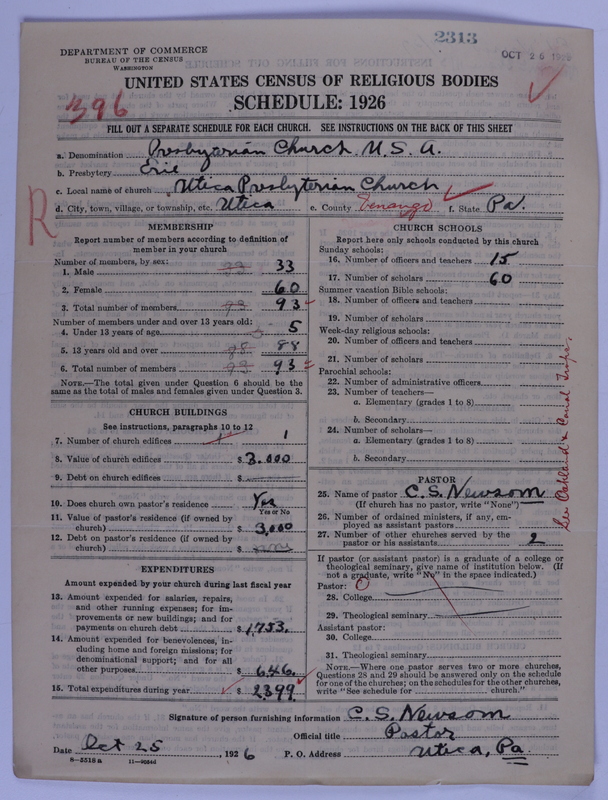 2313
DEPARTMENT OF COMMERCE
BUREAU OF THE CENSUS
WASHINGTON
OCT 26
UNITED STATES CENSUS OF RELIGIOUS BODIES
396
SCHEDULE: 1926
FILL OUT A SEPARATE SCHEDULE FOR EACH CHURCH. SEE INSTRUCTIONS ON THE BACK OF THIS SHEET
a. Denomination Presbyterian Church U. S. A.
b. Presbytery Erie
c. Local name of church Utica Presbyterian Church
d. City, town, village, or township, etc. Utica e. County Venango f. State Pa.
R
MEMBERSHIP
Report number of members according to definition of
member in your church
Number of members, by sex:
1. Male 33
2. Female 60
3. Total number of members 93
Number of members under and over 13 years old:
4. Under 13 years of age 5
5. 13 years old and over 88
6. Total number of members 93
NOTE.—The total given under Question 6 should be the
same as the total of males and females given under Question 3.
CHURCH BUILDINGS
See instructions, paragraphs 10 to 12
7. Number of church edifices 1
8. Value of church edifices $ 3.000
9. Debt on church edifices $
10. Does church own pastor's residence Yes
Yes or No
11. Value of pastor's residence (if owned by
church) $ 3,000
12. Debt on pastor's residence (if owned by
church) $
EXPENDITURES
Amount expended by your church during last fiscal year
13. Amount expended for salaries, repairs,
and other running expenses; for im-
provements or new buildings; and for
payments on church debt $ 1,753.
14. Amount expended for benevolences, in-
cluding home and foreign missions; for
denominational support; and for all
other purposes $ 646.
15. Total expenditures during year $ 2,399
CHURCH SCHOOLS
Report here only schools conducted by this church
Sunday schools:
16. Number of officers and teachers 15
17. Number of scholars 60
Summer vacation Bible schools:
18. Number of officers and teachers
19. Number of scholars
Week-day religious schools:
20. Number of officers and teachers
21. Number of scholars
Parochial schools:
22. Number of administrative officers
23. Number of teachers—
a. Elementary (grades 1 to 8)
b. Secondary
24. Number of scholars—
a. Elementary (grades 1 to 8)
b. Secondary
PASTOR
25. Name of pastor C. S. Newsom
(If church has no pastor, write "None")
26. Number of ordained ministers, if any, em-
ployed as assistant pastors
27. Number of other churches served by the
pastor or his assistants 2
If pastor (or assistant pastor) is a graduate of a college or
theological seminary, give name of institution below. (If
not a graduate, write "No" in the space indicated.)
Pastor:
28. College
29. Theological seminary
Assistant pastor:
30. College
31. Theological seminary
NOTE.—Where one pastor serves two or more churches,
Questions 28 and 29 should be answered only on the schedule
for one of the churches; on the schedules for the other churches,
write "See schedule for church."
See Oakland & Canal
Signature of person furnishing information C. S. Newsom
Official title Pastor
Date Oct 25, 1926 P. O. Address Utica, Pa.
8—3518 a